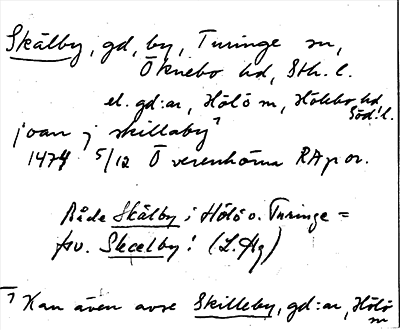 Skälby, gd, by, Turinge sn,
Öknebo hd, Sth. l.
el. gd:ar, Hölö sn, Hölebo hd
Söd. l.
joan j skillaby ⁊
1474 5/12 Ö
RAp or.
Både Skälby i Hölö o. Turinge =
fsv. Skælby! (L. Hg)
⁊ Kan även avse Skilleby, gd:ar, Hölö
sn